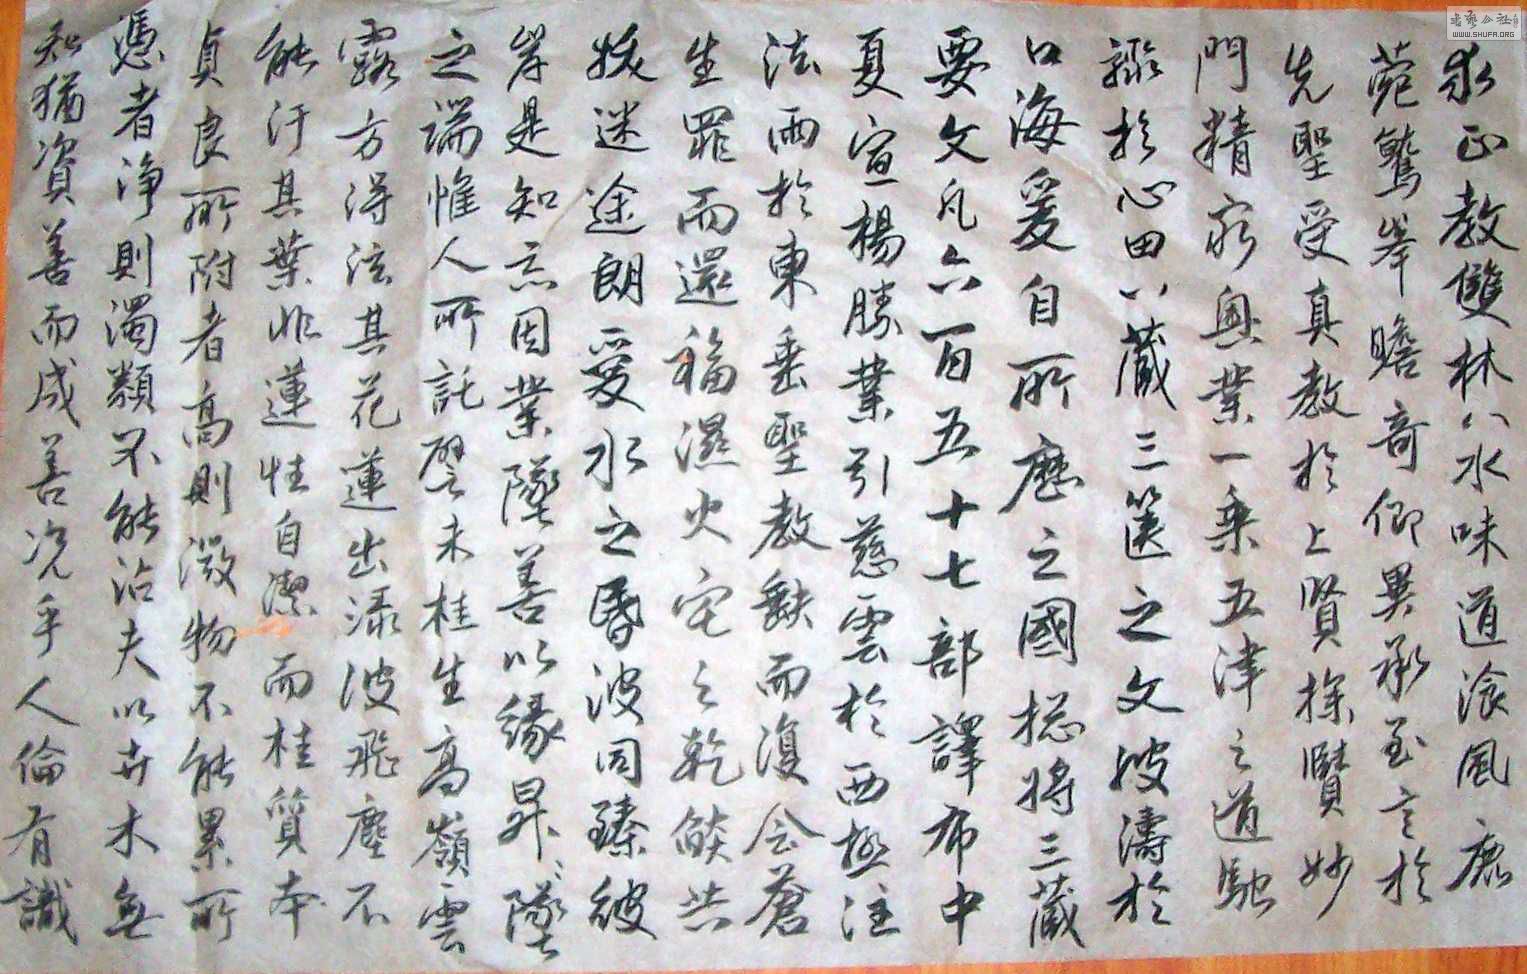 求正教雙林八水味道飡風鹿
菀鷲峯瞻奇仰異承至言於
先聖受真教於上賢探賾妙
門精窮奧業一乘五津之道馳
驟於心田八藏三篋之文波濤於
口海爰自所歷之國揔將三藏
要文凡六百五十七部譯布中
夏宣楊勝業引慈雲於西極注
法雨於東垂聖教缺而復全蒼
生罪而還福濕火宅之乾燄共
拔迷途朗愛水之昏波同臻彼
岸是知惡因業墜善以緣昇〻墜
之端惟人所託譬夫桂生高嶺雲
露方得泫其花蓮出淥波飛塵不
能汙其葉非蓮性自潔而桂質本
貞良所附者高則微物不能累所
憑者淨則濁類不能沾夫以卉木無
知猶資善而成善況乎人倫有識
書藝公社
WWW.SHUFA.ORG